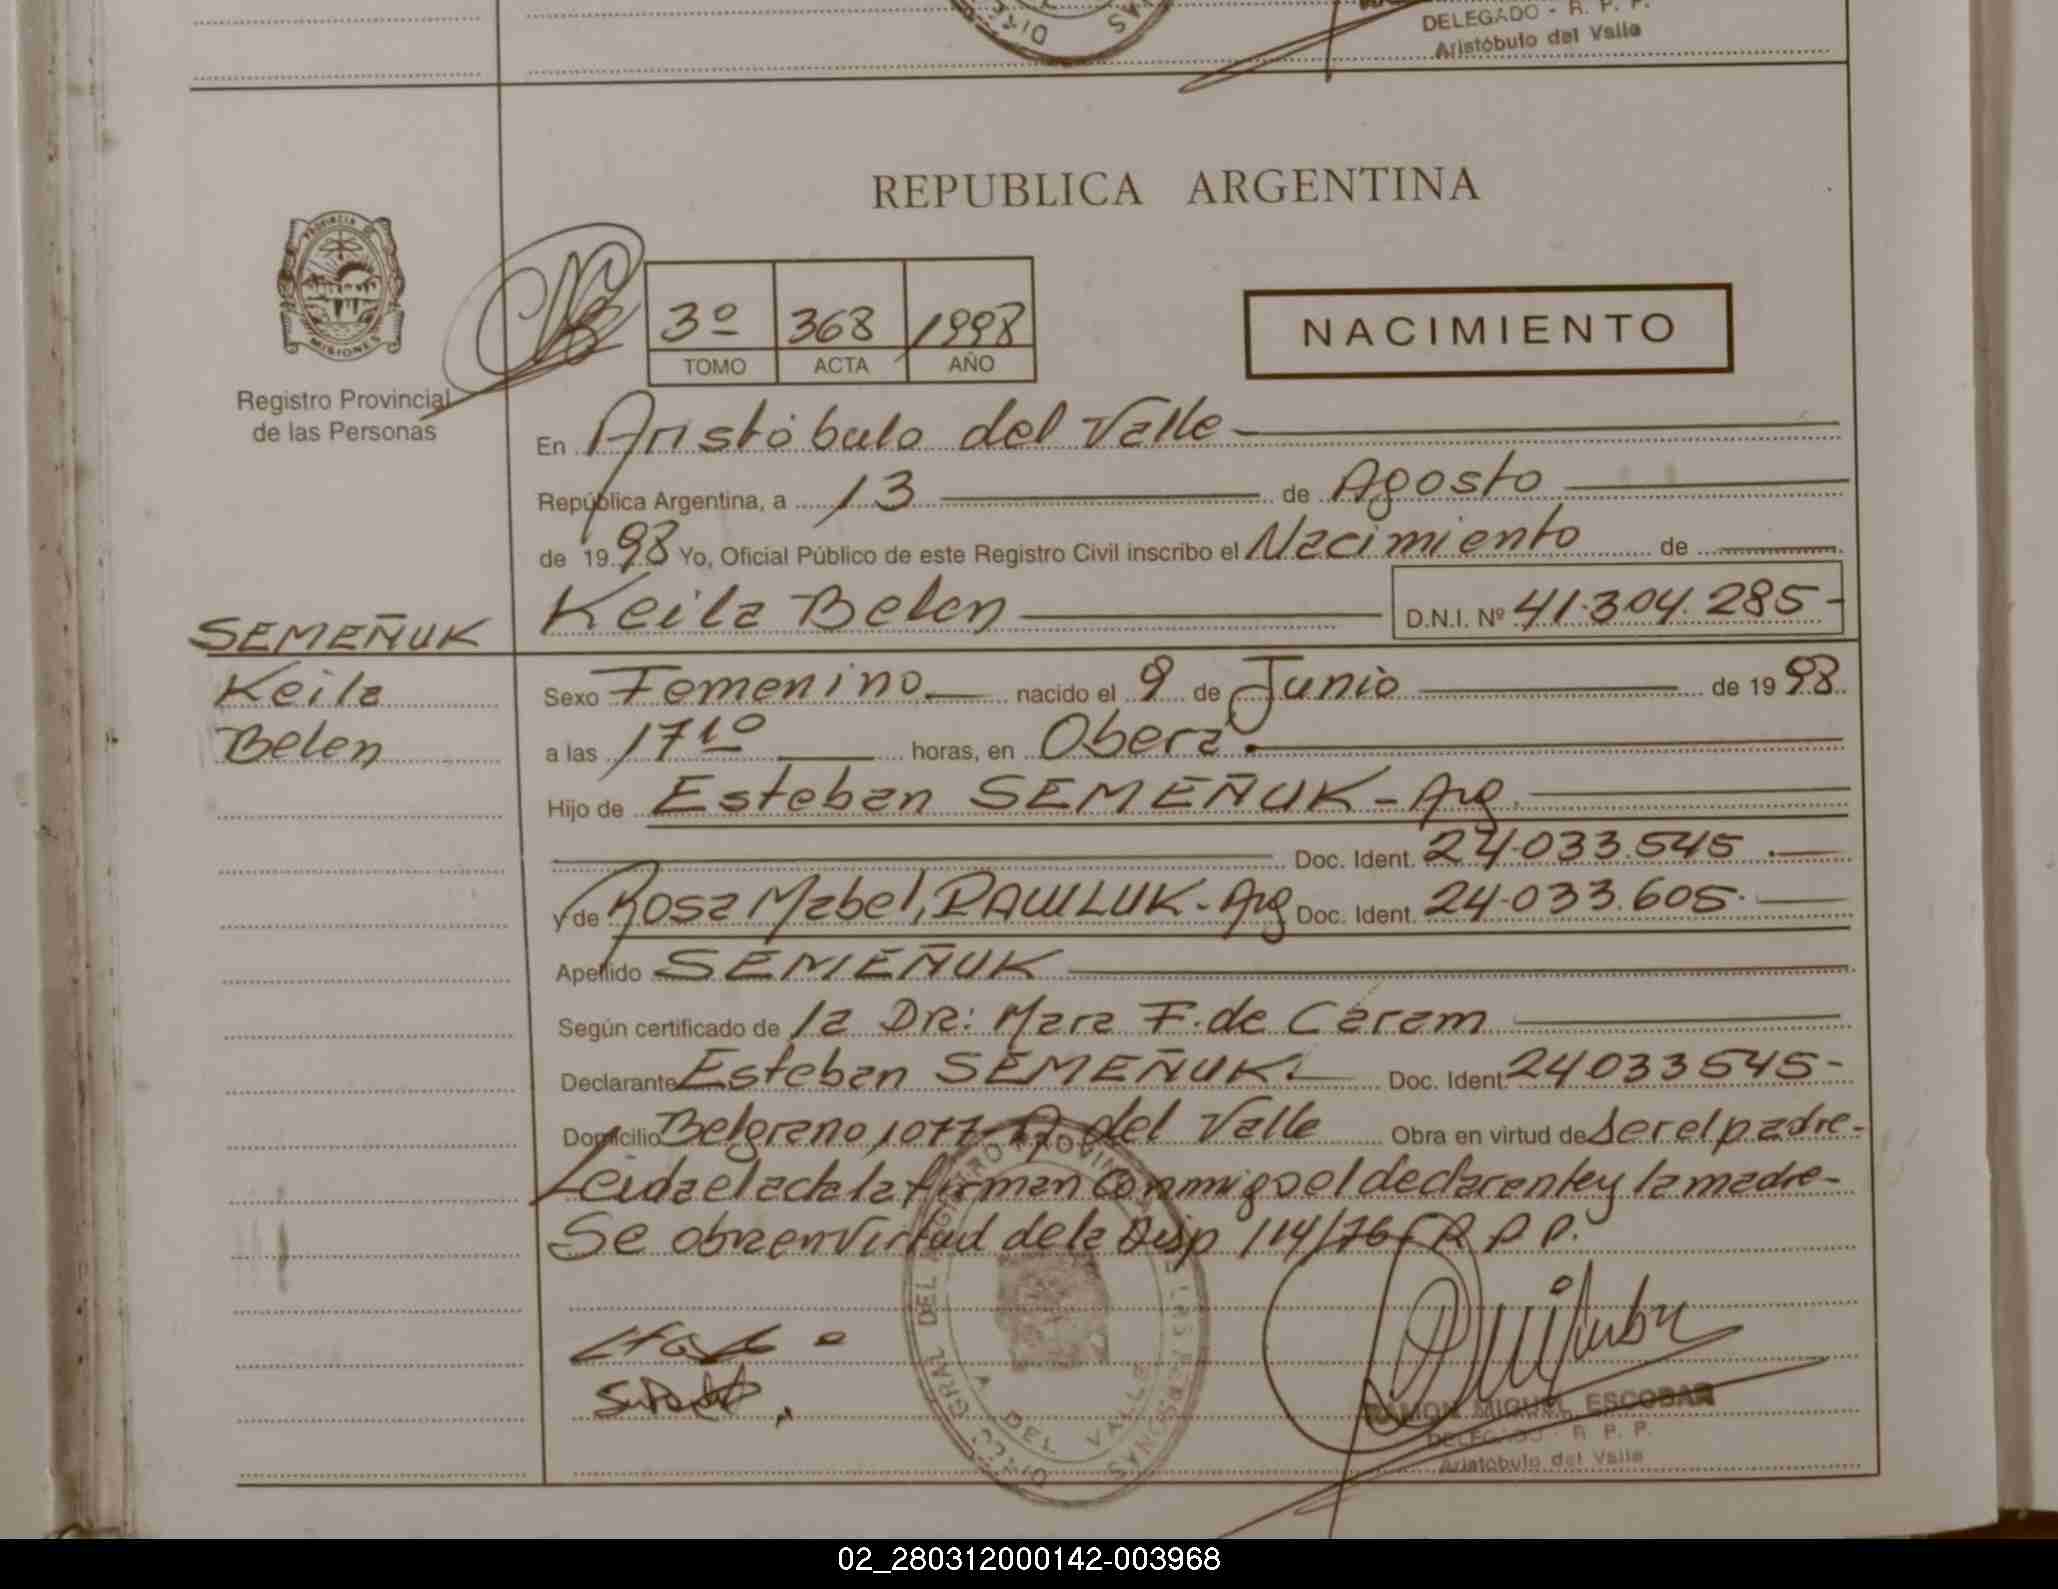 DELEGADO - R. P. P.
Aristóbulo del Valle
REPUBLICA ARGENTINA
PROVINCIA DE MISIONES
Registro Provincial
de las Personas
3º 368 1998
TOMO ACTA AÑO
NACIMIENTO
En Aristóbulo del Valle
República Argentina, a 13 de Agosto
de 1998 Yo, Oficial Público de este Registro Civil inscribo el Nacimiento de
Keila Belen D.N.I. Nº 41.304.285-
SEMEÑUK
Keila
Belen
Sexo Femenino nacido el 9 de Junio de 1998
a las 17 10 horas, en Obera
Hijo de Esteban SEMEÑUK - Arg.
Doc. Ident. 24.033.545
y de Rosa Mabel, PAWLUK - Arg Doc. Ident. 24.033.605
Apellido SEMEÑUK
Según certificado de la Dra: Mara F. de Caram
Declarante Esteban SEMEÑUK Doc. Ident. 24033545-
Domicilio Belgrano, 1077- A del Valle Obra en virtud de ser el padre-
Leida el acta la firman conmigo el declarante y la madre-
Se obra en virtud de la Disp 114/76 R P P.
DIREC. GRAL. DEL REGISTRO PROVINCIAL DE LAS PERSONAS
A DEL VALLE
RAMON MIGUEL ESCOBAR
DELEGADO - R. P. P.
Aristóbulo del Valle
02_280312000142-003968